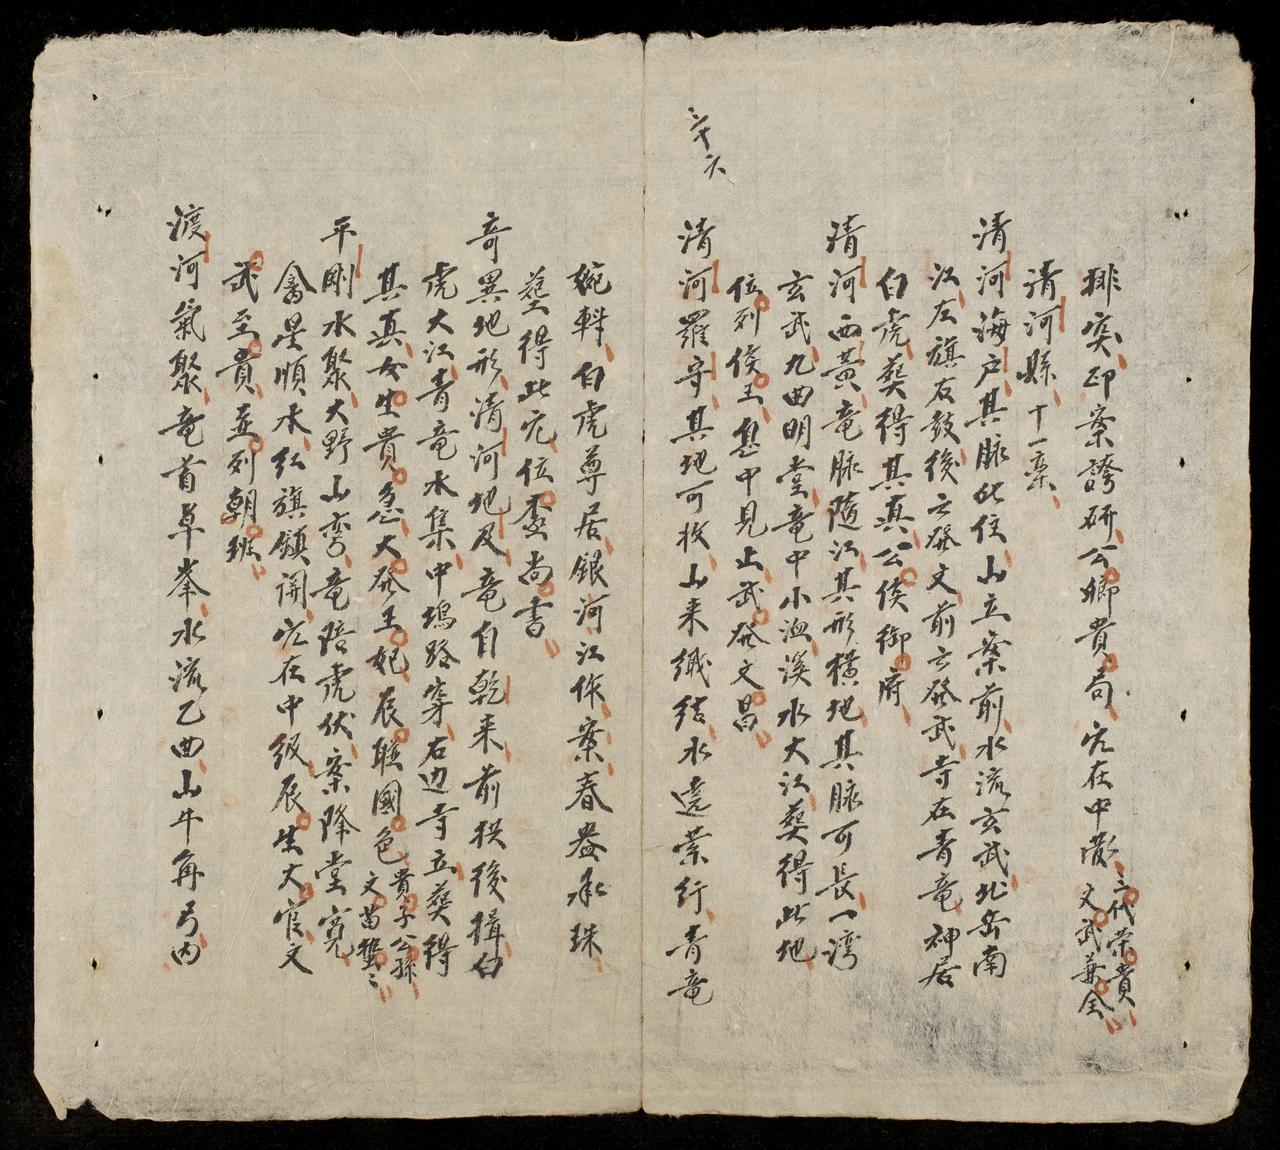 排突印案誇研公卿貴局穴在中藏三代荣貴
文武兼全
清河縣十一案
清河海户其脉此住山立案前水流玄武北岳南
江左旗右鼓後云發文前云發武寺在青竜神居
白虎葬得其真公侯御府
清河西黃竜脉隨江其形橫地其脉可長一湾
玄武九曲明堂竜中小溪水大江葬得此地
位列侯王息中見上武發文昌
三十六
清河羅寺其地可投山来織結水遶業行青竜
蜿蚪白虎尊居銀河江作案春登承珠
塟得此穴位委尚書
奇異地形清河地及竜自乾来前拱後揖白
虎大江青竜水集中塢路穿右边寺立葬得
其真女生貴急大發王妃辰联國色貴子公孫
文苗蛰〻
平剛水聚大野山弯竜陪虎伏案降堂寬
禽星順水紅旗鎮開穴在中級辰生大官文
武至貴並列朝班
渡河氣聚竜首卓峯水流乙曲山牛角弓内